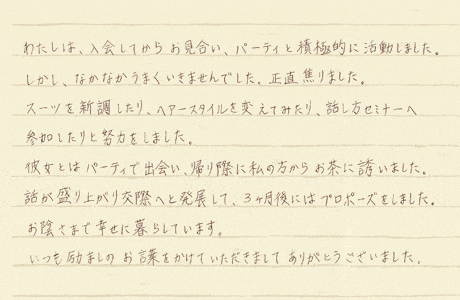 わたしは、入会してから お見合い、パーティと積極的に 活動しました。
しかし、なかなかうまくいきませんでした。正直 焦りました。
スーツを新調したり、ヘアースタイルを変えてみたり、話し方セミナーへ
参加したりと努力をしました。
彼女とは パーティで出会い、帰り際に私の方から お茶に誘いました。
話が盛り上がり交際へと発展して、3ヶ月後には プロポーズをしました。
お陰さまで幸せに暮らしています。
いつも励ましの お言葉をかけていただきまして ありがとうございました。